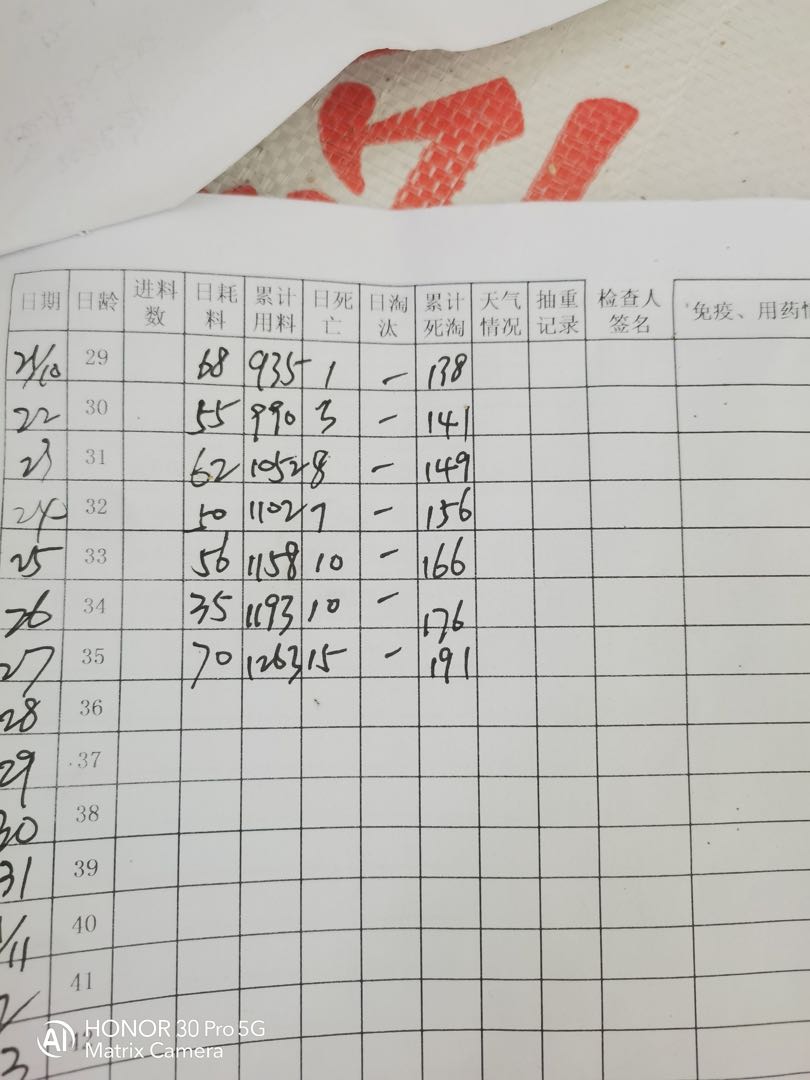 日期 日龄 进料数 日耗料 累计用料 日死亡 日淘汰 累计死淘 天气情况 抽重记录 检查人签名 免疫、用药情
21/10 29 68 935 1 - 138
22 30 55 990 3 - 141
23 31 62 1052 8 - 149
24 32 50 1102 7 - 156
25 33 56 1158 10 - 166
26 34 35 1193 10 - 176
27 35 70 1263 15 - 191
28 36
29 37
30 38
31 39
1/11 40
2 41
3
HONOR 30 Pro 5G
Matrix Camera